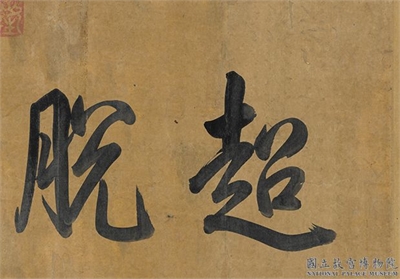 超脫
國立故宮博物院
NATIONAL PALACE MUSEUM